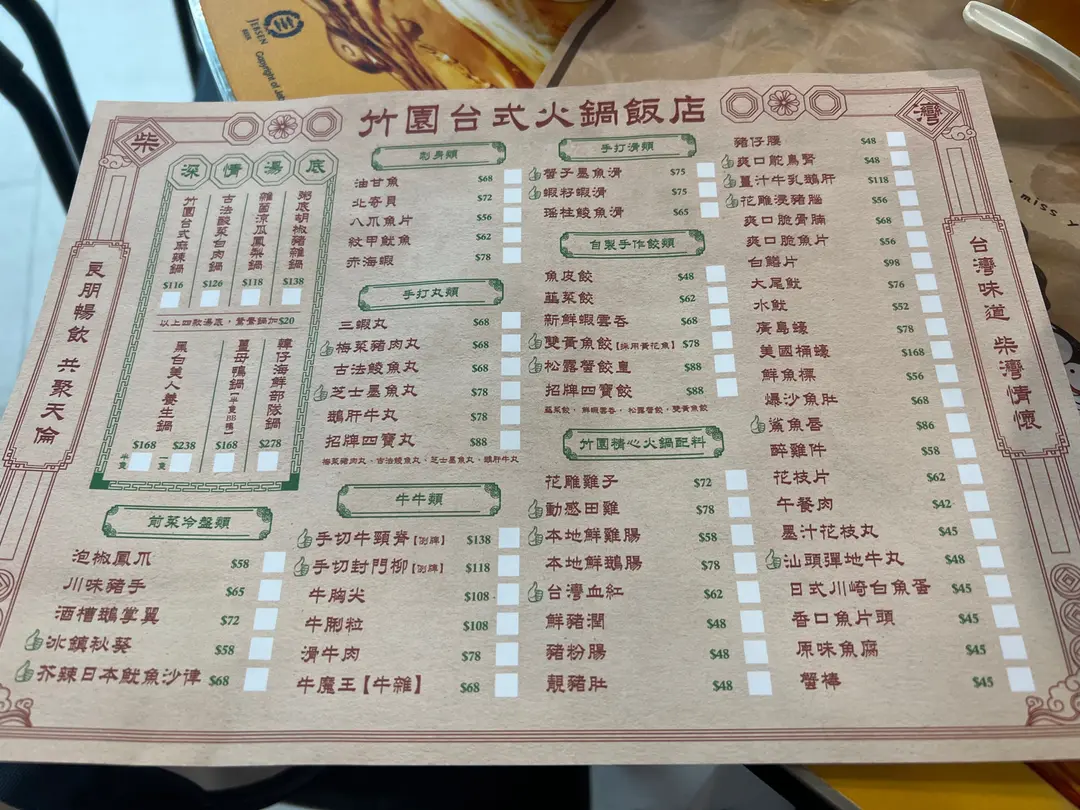 JEBSEN
竹園台式火鍋飯店
柴
灣
良朋暢飲 共聚天倫
台灣味道 柴灣情懷
深情湯底
竹園台式麻辣鍋 $116
古法酸菜白肉鍋 $126
雜菌涼瓜鳳梨鍋 $118
粥底胡椒豬雜鍋 $138
以上四款湯底,鴛鴦鍋加$20
黑白美人養生鍋 半隻 $168 一隻 $238
薑母鴨鍋【半隻BB鴨】 $168
韓仔海鮮部隊鍋 $278
前菜冷盤類
泡椒鳳爪 $58
川味豬手 $65
酒糟鵝掌翼 $72
冰鎮秋葵 $58
芥辣日本魷魚沙律 $68
刺身類
油甘魚 $68
北奇貝 $72
八爪魚片 $56
紋甲魷魚 $62
赤海蝦 $78
手打丸類
三蝦丸 $68
梅菜豬肉丸 $68
古法鯪魚丸 $68
芝士墨魚丸 $78
鵝肝牛丸 $78
招牌四寶丸 $88
梅菜豬肉丸、古法鯪魚丸、芝士墨魚丸、鵝肝牛丸
牛牛類
手切牛頸脊【例牌】 $138
手切封門柳【例牌】 $118
牛胸尖 $108
牛脷粒 $108
滑牛肉 $78
牛魔王【牛雜】 $68
手打滑類
蟹子墨魚滑 $75
蝦籽蝦滑 $75
瑤柱鯪魚滑 $65
自製手作餃類
魚皮餃 $48
韮菜餃 $62
新鮮蝦雲吞 $68
雙黃魚餃【採用黃花魚】 $78
松露蟹餃皇 $88
招牌四寶餃 $88
韮菜餃、鮮蝦雲吞、松露蟹餃、雙黃魚餃
竹園精心火鍋配料
花雕雞子 $72
動感田雞 $78
本地鮮雞腸 $58
本地鮮鵝腸 $78
台灣血紅 $62
鮮豬潤 $48
豬粉腸 $48
靚豬肚 $48
豬仔腰 $48
爽口鴕鳥腎 $48
薑汁牛乳鵝肝 $118
花雕浸豬腦 $56
爽口脆骨腩 $68
爽口脆魚片 $56
白鱔片 $98
大尾魷 $76
水魷 $52
廣島蠔 $78
美國桶蠔 $168
鮮魚標 $56
爆沙魚肚 $68
鯊魚唇 $86
醉雞件 $58
花枝片 $62
午餐肉 $42
墨汁花枝丸 $45
汕頭彈地牛丸 $48
日式川崎白魚蛋 $45
香口魚片頭 $45
原味魚腐 $45
蟹棒 $45